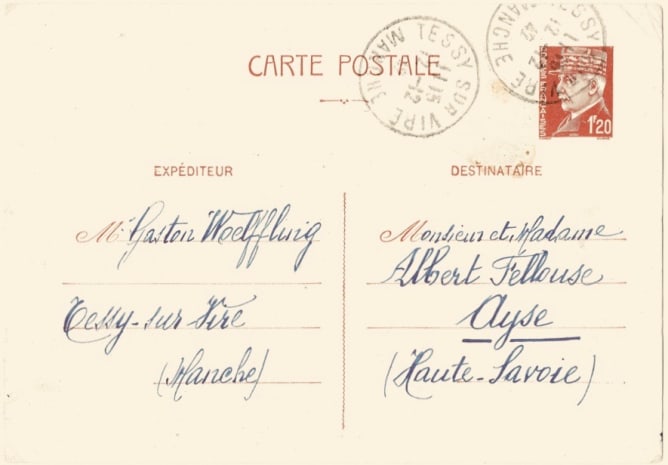 CARTE POSTALE
TESSY SUR VIRE
MANCHE
TESSY
MANCHE
1F20
EXPÉDITEUR
Mr Gaston Woelffling
Tessy-sur Vire
(Manche)
DESTINATAIRE
Monsieur et Madame
Albert Fellouse
Ayse
(Haute-Savoie)